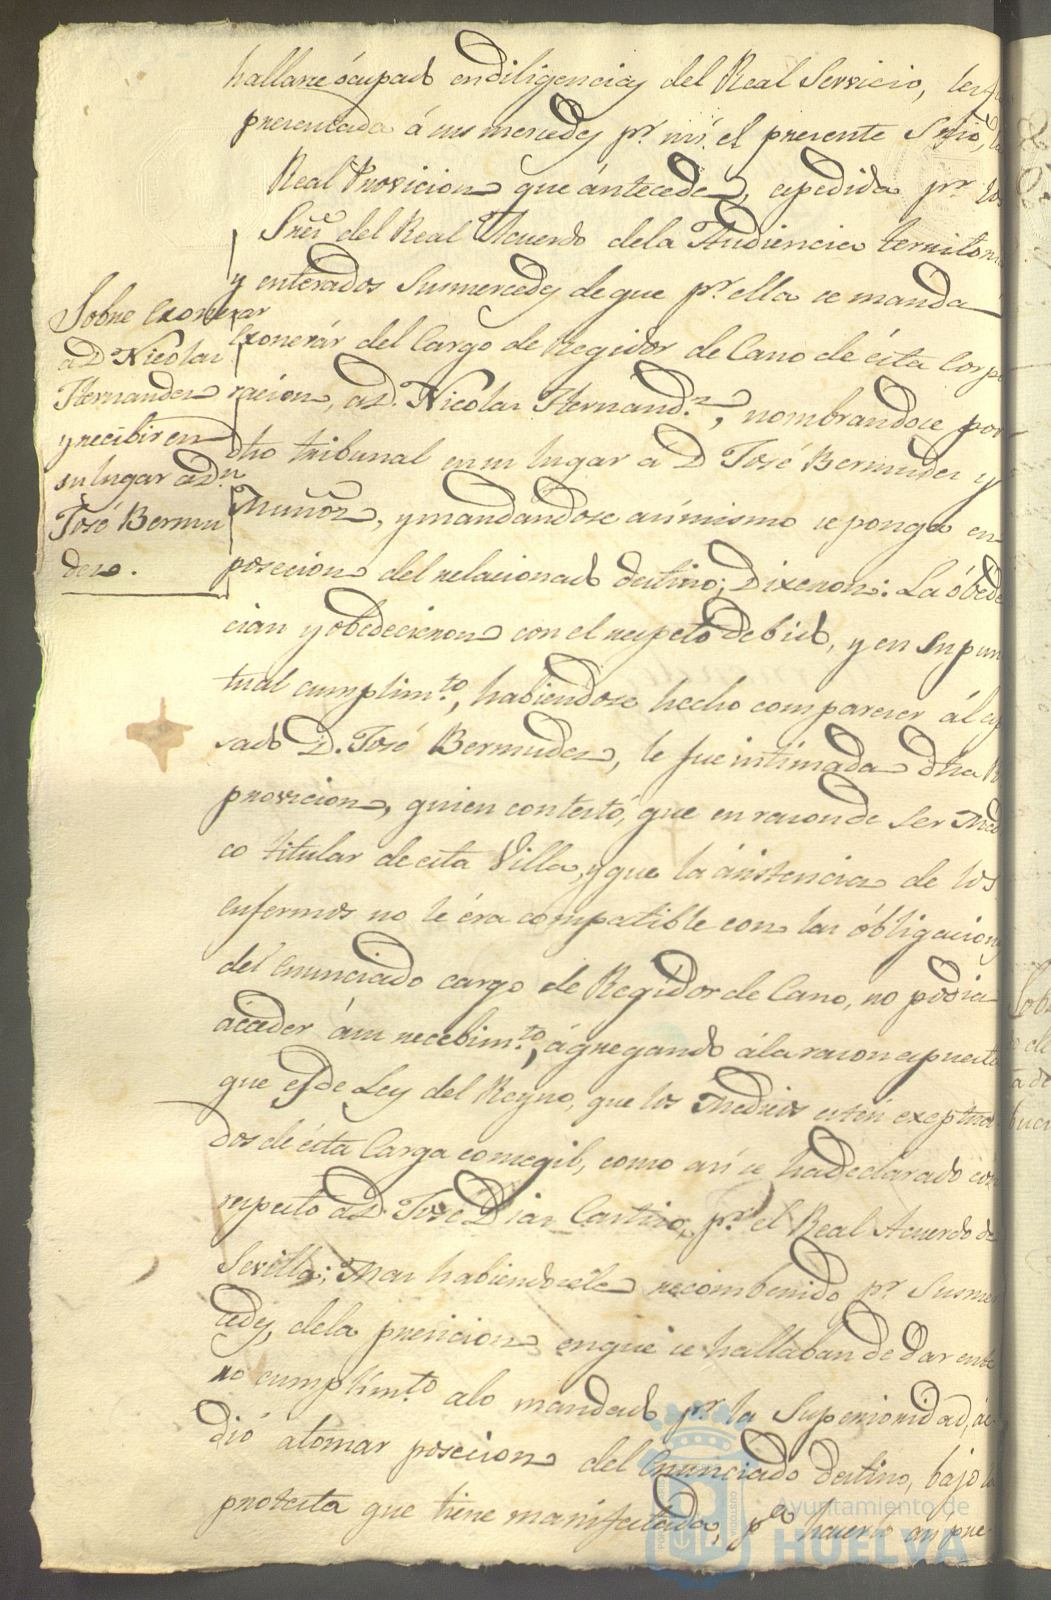 hallarse ócupads endiligencias del Real Servicio, les fu
presentada á sus mercedes pr. mí. el presente Srio, la
Real Provicion que ántecede, espedida pr. los
Sres. del Real Acuerdo dela Audiencia territori
y enterados Susmercedes de que pr. ella se manda
Exonerár del Cargo de Regidor de Cano de ésta Corpo
racion, a D. Nicolas Hernandz., nombrandose por
dho tribunal en su lugar á D José Bermudez y
Muñoz, y mandandose asímismo se ponga en
posecion del relacionads destino; Dixeron: La óbede
cian y obedecieron con el respeto debids, y en su pun
tual cumplimto., habiendose hecho comparecer ál espre
sads D. José Bermudez, le fue intimada dha R
provicion, quien contestó, que en razon de ser Medi
co titular de esta Villa, y que la ásistencia de los
enfermos no le éra compatible con las óbligaciones
del enunciado cargo de Regidor de Cano, no podia
ácceder ásu recebimto., ágregando ála razon espuesta
que es de Ley del Reyno, que los Medicos estén exeptua
dos de ésta Carga concegil, como asi se ha declarado con
respecto a D. José Diaz Castizo, pr. el Real Acuerdo de
Sevilla; Mas habiendosele recombenido pr. Susmer
cedes, dela precicion en que se hallaban de dar ente
ro cumplimto. alo mandads pr. la Superioridad, ác
dió átomar posecion del Enunciado destino, bajo la
protesta que tiene manifestada, pa. hacerlo así pre
Sobre Exonerar
a D Nicolas
Hernandez
y recibir en
su lugar a Dn.
José Bermu
dez.
Ayuntamiento de
HUELVA